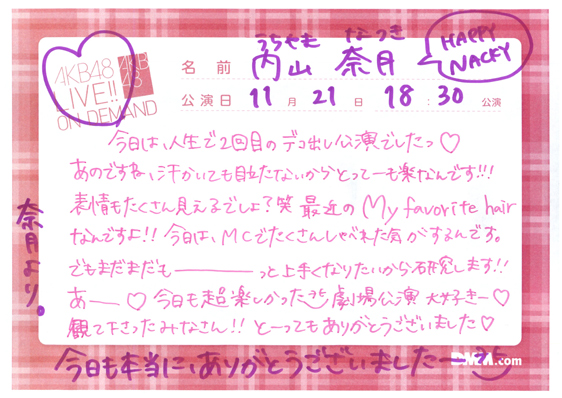 AKB48
LIVE!!
ON DEMAND
AKB
48
うちやま なつき
名前 内山 奈月
HAPPY
NACKY
公演日 11月21日 18:30公演
今日は、人生で2回目のデコ出し公演でしたっ♡
あのですね、汗かいても目立たないからとっても楽なんです!!!
表情もたくさん見えるでしょ?笑 最近の My favorite hair
なんですよ!! 今日は、MCでたくさんしゃべれた気がするんです。
でもまだまだも――――っと上手くなりたいから研究します!!
あー♡今日も超楽しかった 劇場公演 大好きー♡
観て下さったみなさん!! とーってもありがとうございました♡
奈月より。
今日も本当に、ありがとうございましたー
DMM.com